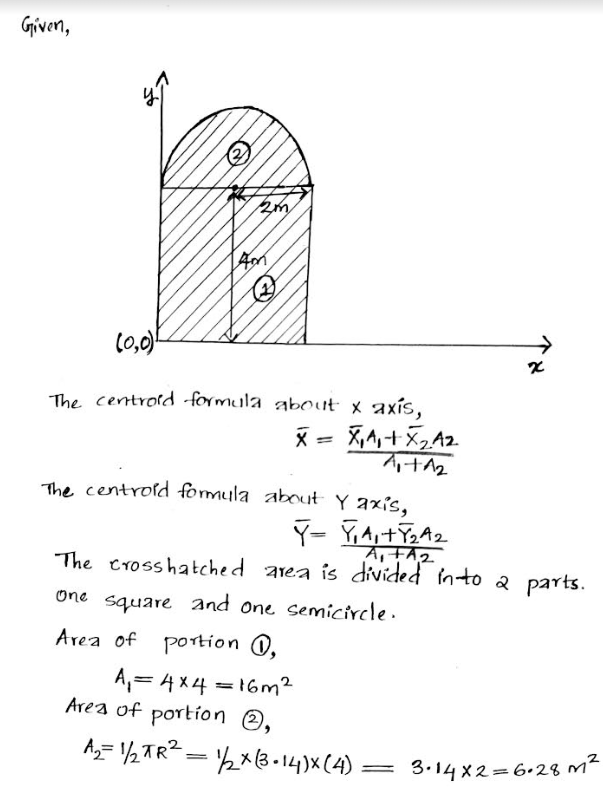 Given,
y
②
2m
4m
①
(0,0)
x
The centroid formula about x axis,
X̄ = X̄₁A₁+X̄₂A2
A₁+A2
The centroid formula about Y axis,
Ȳ= Ȳ₁A₁+Ȳ₂A2
A₁+A2
The crosshatched area is divided into 2 parts.
One square and one semicircle.
Area of portion ①,
A₁= 4×4 =16m²
Area of portion ②,
A₂= 1/2 πR² = 1/2×(3.14)×(4) = 3.14×2=6.28 m²